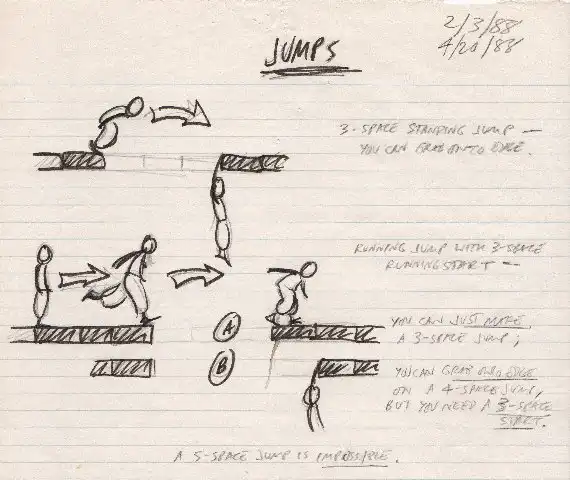 2/3/88
4/20/88
JUMPS
3-SPACE STANDING JUMP —
YOU CAN GRAB ONTO EDGE.
RUNNING JUMP WITH 3-SPACE
RUNNING START —
A
YOU CAN JUST MAKE
A 3-SPACE JUMP;
B
YOU CAN GRAB ONTO EDGE
ON A 4-SPACE JUMP,
BUT YOU NEED A 3-SPACE
START.
A 5-SPACE JUMP IS IMPOSSIBLE.